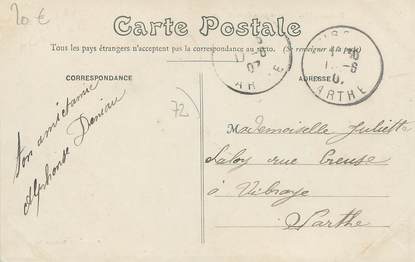 20 €
Carte Postale
Tous les pays étrangers n'acceptent pas la correspondance au recto. (Se renseigner à la poste)
CORRESPONDANCE
ADRESSE
SARTHE
72
Ton ami
Alphonse Deniau
Mademoiselle Juliette
Laloy rue Creuse
à Vibraye
Sarthe